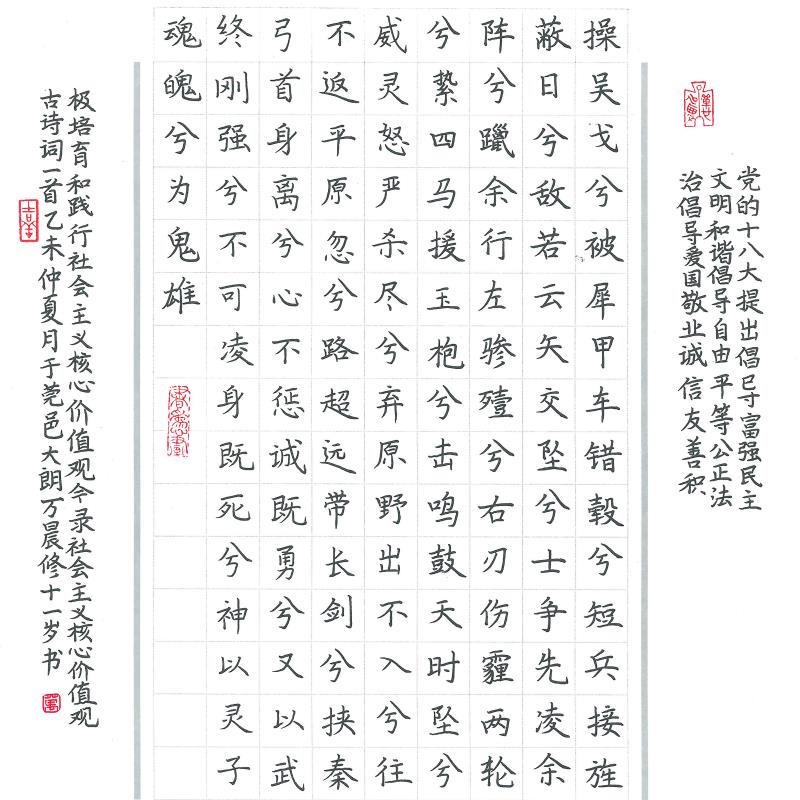 党的十八大提出倡导富强民主
文明和谐倡导自由平等公正法
治倡导爱国敬业诚信友善积
操吴戈兮被犀甲车错毂兮短兵接旌
蔽日兮敌若云矢交坠兮士争先凌余
阵兮躐余行左骖殪兮右刃伤霾两轮
兮絷四马援玉枹兮击鸣鼓天时坠兮
威灵怒严杀尽兮弃原野出不入兮往
不返平原忽兮路超远带长剑兮挟秦
弓首身离兮心不惩诚既勇兮又以武
终刚强兮不可凌身既死兮神以灵子
魂魄兮为鬼雄
极培育和践行社会主义核心价值观今录社会主义核心价值观
古诗词一首乙未仲夏月于莞邑大朗万晨修十一岁书